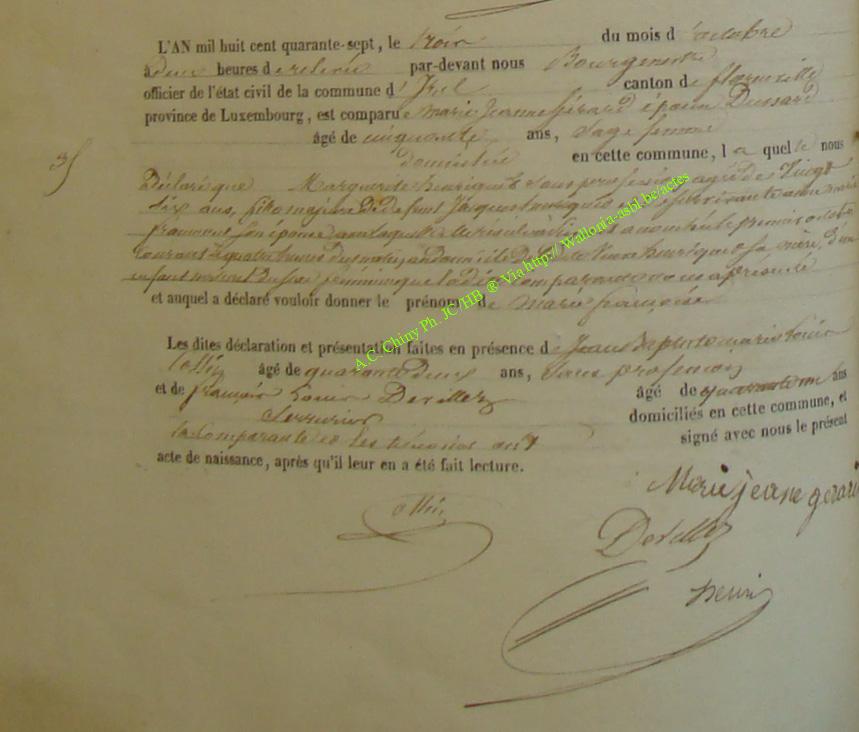 L'AN mil huit cent quarante-sept, le trois du mois d'octobre
à deux heures de relevée par-devant nous Bourgmestre
officier de l'état civil de la commune d'Izel canton de florenville
province de Luxembourg, est comparue marie Jeanne gérard épouse Dussard
âgé de cinquante ans, sage femme
domiciliée en cette commune, laquelle nous
Déclare que Marguerite henrique sans profession agée de Vingt
six ans, fille majeure de defunt Jacques henrique et
son épouse avec laquelle elle est accouchée le premier octobre
courant à quatre heures du matin, au domicile de sa mère, d'un
enfant du sexe féminin que la dite Comparante nous a présenté
et auquel a déclaré vouloir donner le prénom de marie françoise
Les dites déclaration et présentation faites en présence de Jean Baptiste marie Louis
Collin âgé de quarante deux ans, sans profession
et de françois Louis Devillez âgé de quarante ans
Serrurier domiciliés en cette commune, et
la Comparante et les témoins ont signé avec nous le présent
acte de naissance, après qu'il leur en a été fait lecture.
Marie jeane gerard
Collin
Devillez
henri
A.C. Chiny Ph. JC/HB ® Via http://Wallonia-asbl.be/actes